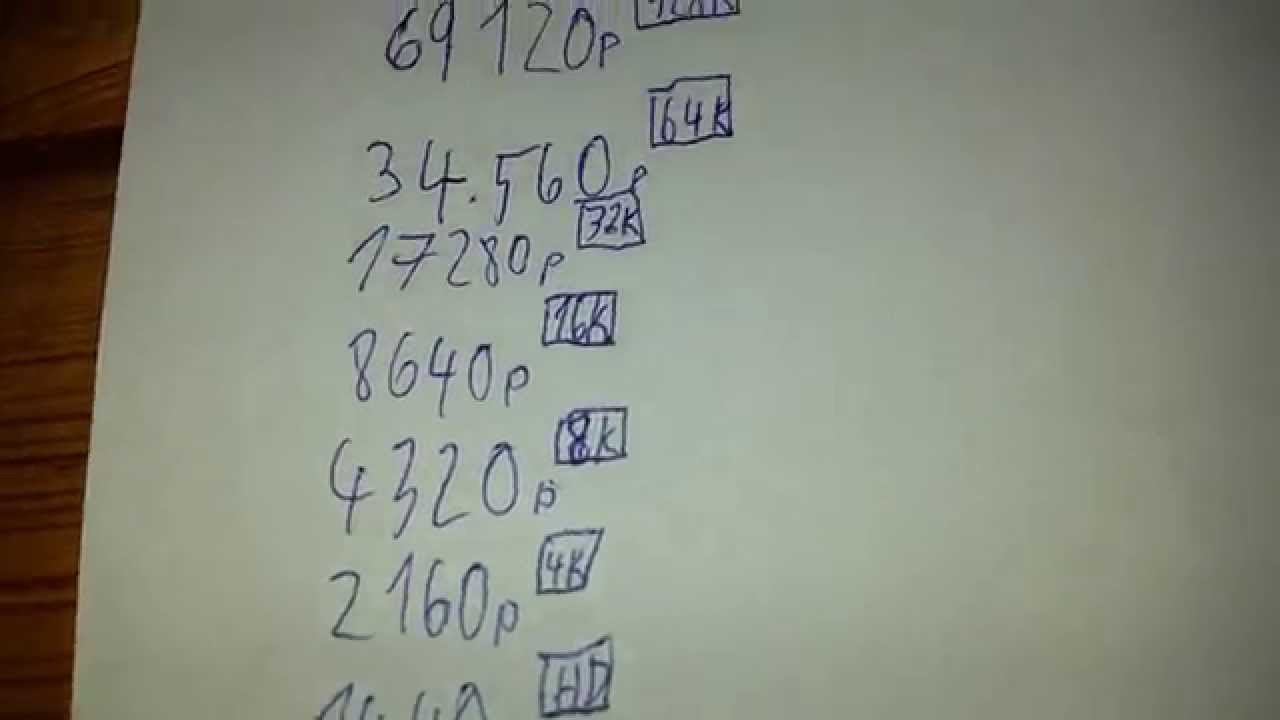 69120p 128K
34.560p 64K
17280p 32K
8640p 16K
4320p 8K
2160p 4K
1440 HD